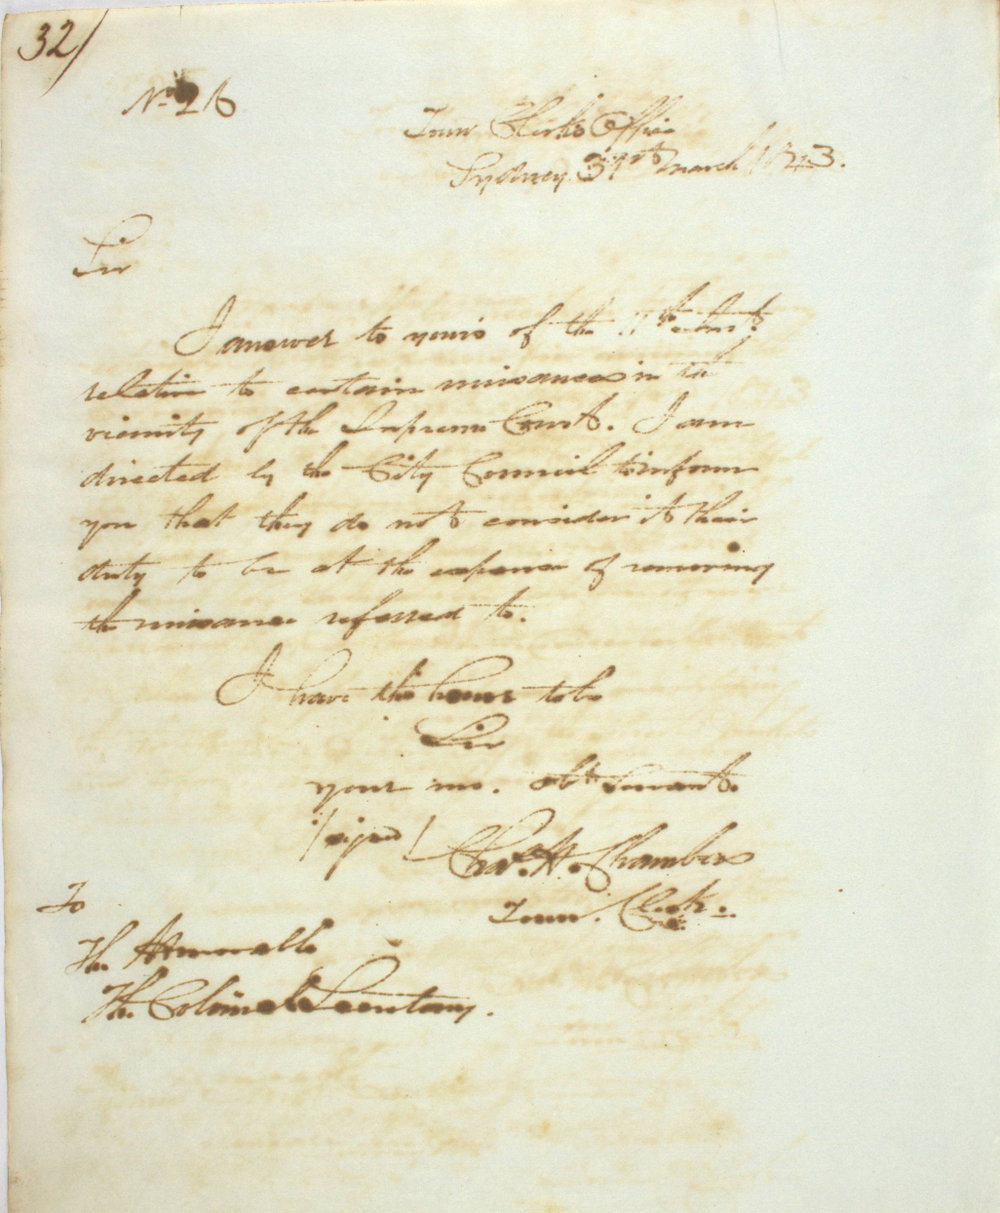 32/
No. 26
Town Clerks Office
Sydney 31st March 1843.
Sir
I answer to yours of the inst.
relative to certain nuisances in the
vicinity of the Supreme Court. I am
directed by the City Council to inform
you that they do not consider it their
duty to be at the expense of removing
the nuisance referred to.
I have the honor to be
Sir
your mo. obt. Servant.
/signed/ Chas. H. Chambers
Town. Clerk.
To
The Honorable
The Colonial Secretary.